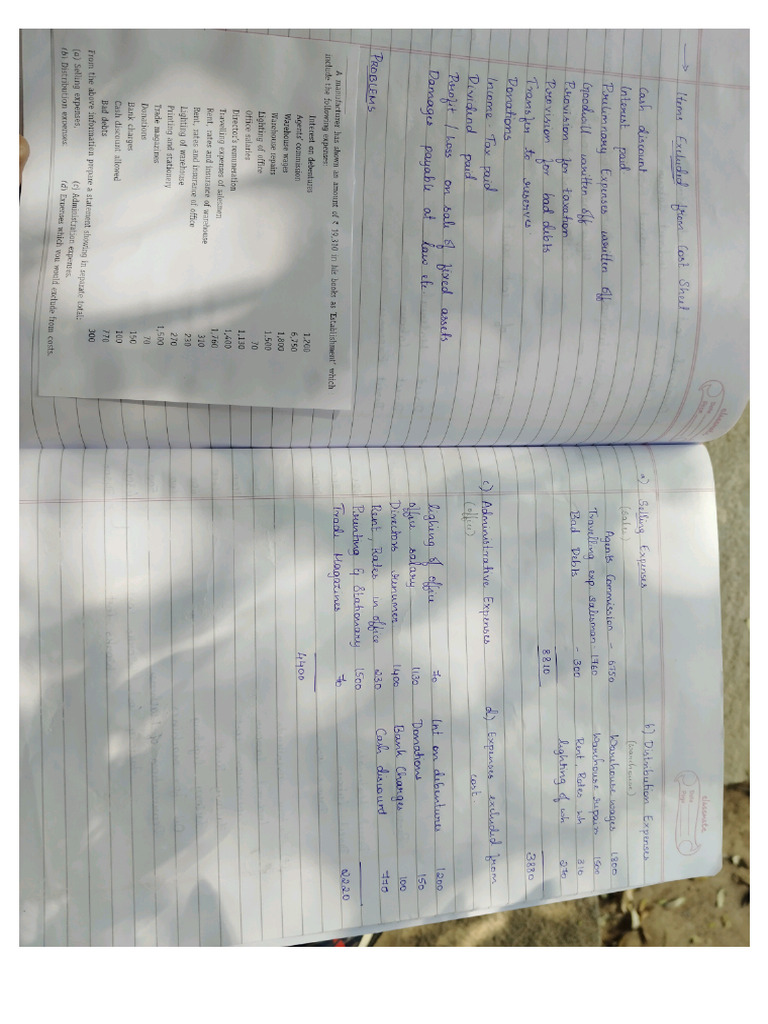 → Items Excluded from Cost Sheet
Cash discount
Interest paid
Preliminary Expenses written off
Goodwill written off
Provision for taxation
Provision for bad debts
Transfer to reserves
Donations
Income Tax paid
Dividend paid
Profit / Loss on sale of fixed assets
Damages payable at law etc
PROBLEMS
A manufacturer has shown an amount of ₹ 19,310 in his books as 'Establishment' which
include the following expenses:
Interest on debentures 1,200
Agents' commission 6,750
Warehouse wages 1,800
Warehouse repairs 1,500
Lighting of office 70
Office salaries 1,130
Director's remuneration 1,400
Travelling expenses of salesmen 1,760
Rent, rates and insurance of warehouse 310
Rent, rates and insurance of office 230
Lighting of warehouse 270
Printing and stationery 1,500
Trade magazines 70
Donations 150
Bank charges 100
Cash discount allowed 770
Bad debts 300
From the above information prepare a statement showing in separate total:
(a) Selling expenses, (c) Administration expenses.
(b) Distribution expenses. (d) Expenses which you would exclude from costs.
classmate
Date
Page
a) Selling Expenses
(sales)
Agents Commission - 6750
Travelling exp salesman - 1760
Bad Debts - 300
8810
b) Distribution Expenses
(warehouse)
Warehouse wages 1800
Warehouse repair 1500
Rent, Rates wh 310
lighting of wh 270
3880
c) Administrative Expenses
(office)
lighing of office 70
office salary 1130
Directors renumer 1400
Rent, Rates in office 230
Printing & Stationary 1500
Trade Magazines 70
4400
d) Expenses excluded from
cost
Int on debentures 1200
Donations 150
Bank Charges 100
Cash discount 770
2220